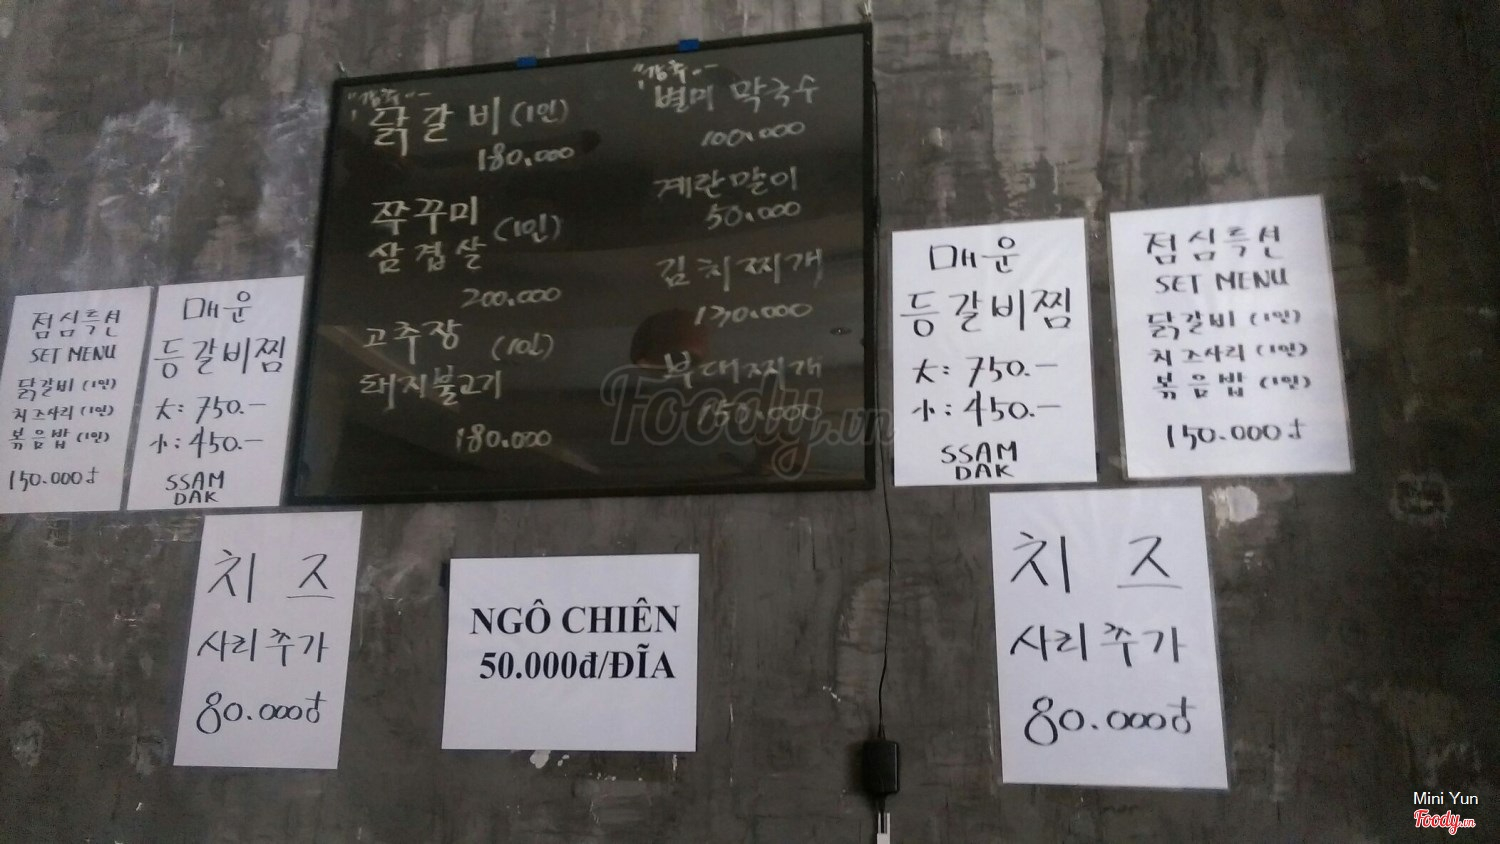 닭갈비 (1인)
180.000
쭈꾸미
삼겹살 (1인)
200.000
고추장 (1인)
돼지불고기
180.000
별미 막국수
100.000
계란말이
50.000
김치찌개
130.000
부대찌개
150.000
점심특선
SET MENU
닭갈비 (1인)
치즈사리 (1인)
볶음밥 (1인)
150.000đ
매운
등갈비찜
大: 750.-
小: 450.-
SSAM
DAK
매운
등갈비찜
大: 750.-
小: 450.-
SSAM
DAK
점심특선
SET MENU
닭갈비 (1인)
치즈사리 (1인)
볶음밥 (1인)
150.000đ
치즈
사리추가
80.000đ
NGÔ CHIÊN
50.000đ/ĐĨA
치즈
사리추가
80.000đ
Foody.vn
Mini Yun
Foody.vn